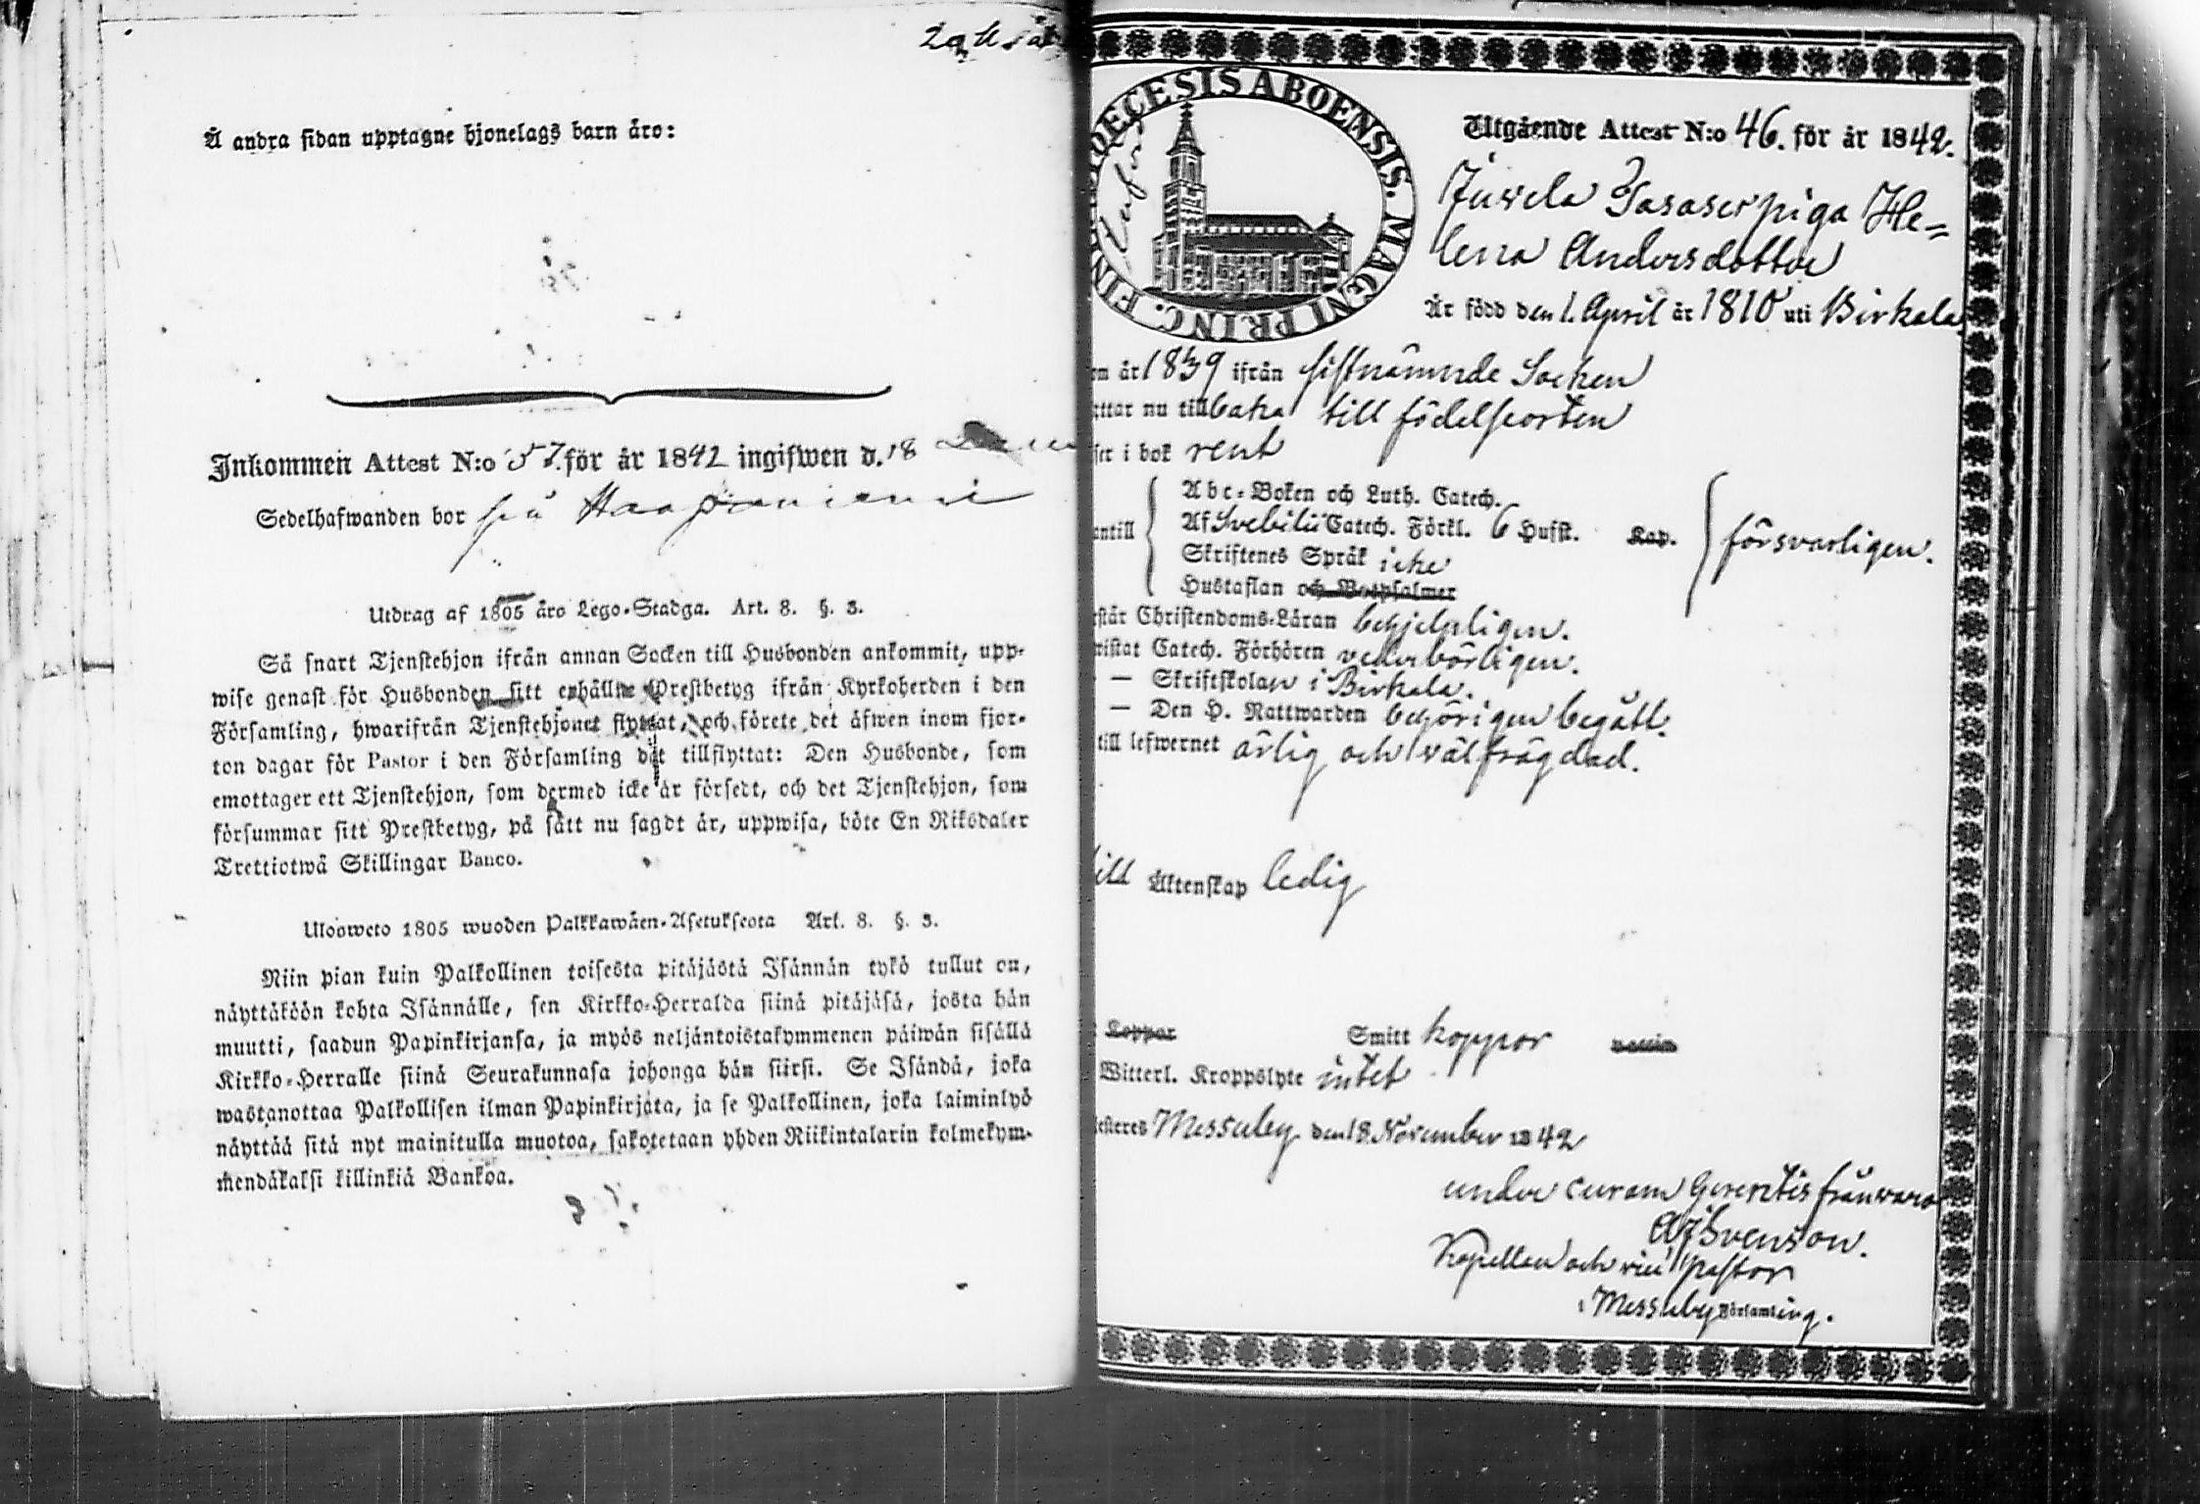 Å andra sidan upptagne hjonelags barn äro:
Inkommen Attest N:o 57. för år 1842 ingifwen d. 18
Sedelhafwanden bor på Haapaniemi
Utdrag af 1805 års Lego-Stadga. Art. 8. §. 3.
Så snart Tjenstehjon ifrån annan Socken till Husbonden ankommit, upp-
wise genast för Husbonden sitt erhållne Prestbetyg ifrån Kyrkoherden i den
Församling, hwarifrån Tjenstehjonet flyttat, och förete det äfwen inom fjor-
ton dagar för Pastor i den Församling dit tillflyttat: Den Husbonde, som
emottager ett Tjenstehjon, som dermed icke är försedt, och det Tjenstehjon, som
försummar sitt Prestbetyg, på sätt nu sagdt är, uppwisa, böte En Riksdaler
Trettiotwå Skillingar Banco.
Ulosweto 1805 wuoden Palkkawäen-Asetuksesta Art. 8. §. 3.
Niin pian kuin Palkollinen toisesta pitäjästä Isännän tykö tullut on,
näyttäköön kohta Isännälle, sen Kirkko-Herralda siinä pitäjäsä, josta hän
muutti, saadun Papinkirjansa, ja myös neljäntoistakymmenen päiwän sisällä
Kirkko-Herralle siinä Seurakunnasa johonga hän siirsi. Se Isändä, joka
wastanottaa Palkollisen ilman Papinkirjata, ja se Palkollinen, joka laiminlyö
näyttää sitä nyt mainitulla muotoa, sakotetaan yhden Riikintalarin kolmekym-
mendäkaksi killinkiä Bankoa.
DIOECESIS ABOENSIS. MAGNI PRINC. FINL
Utgående Attest N:o 46. för år 1842.
Juvela piga He-
lena Andersdotter
Är född den 1. April år 1810 uti Birkala
om år 1839 ifrån sistnämnde Socken
ttar nu tillbaka till födelseorten
ser i bok rent
antill
Abc-Boken och Luth. Catech.
Af Svebilii Catech. Förkl. 6 Hufst. Kap.
försvarligen.
Skriftenes Språk icke
Hustaflan och Botpsalmer
rstår Christendoms-Läran behjelpligen.
wistat Catech. Förhören vederbörligen.
— Skriftskolan i Birkala.
— Den H. Nattwarden behörigen begått.
till lefwernet ärlig och välfrägdad.
till Äktenskap ledig
Koppor Smitt koppor vaccin
Witterl. Kroppslyte intet
esteres Messuby den 18. November 1842
under curam Gerentis frånvaro
AJSvenson.
Kapellan och vice Pastor
i Messuby Församling.